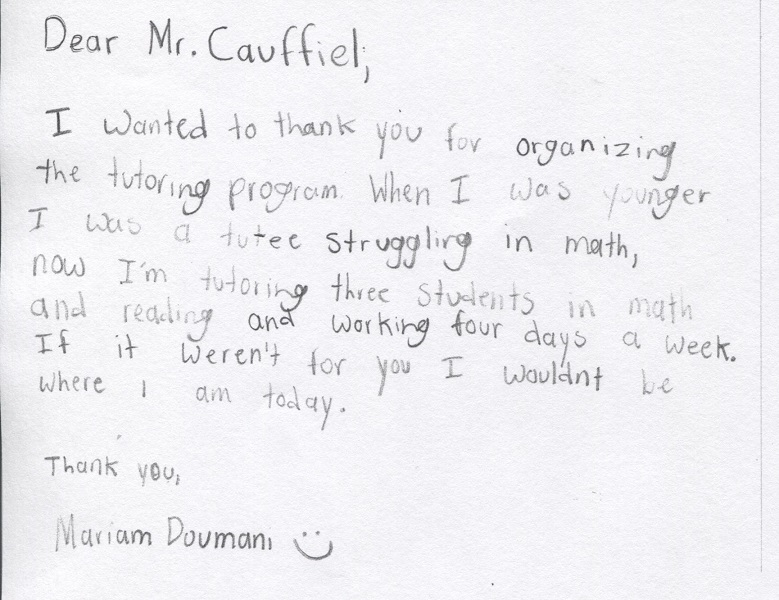 Dear Mr. Cauffiel,
I wanted to thank you for organizing
the tutoring program. When I was younger
I was a tutee struggling in math,
now I'm tutoring three students in math
and reading and working four days a week.
If it weren't for you I wouldnt be
where I am today.
Thank you,
Mariam Doumani